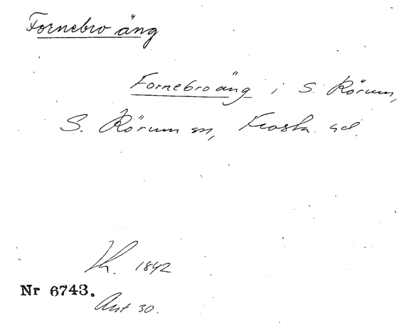 Fornebro äng
Fornebroäng i S. Rörum,
S. Rörum sn, Frosta hd.
Kh. 1842
Nr 6743.
Ant 30.